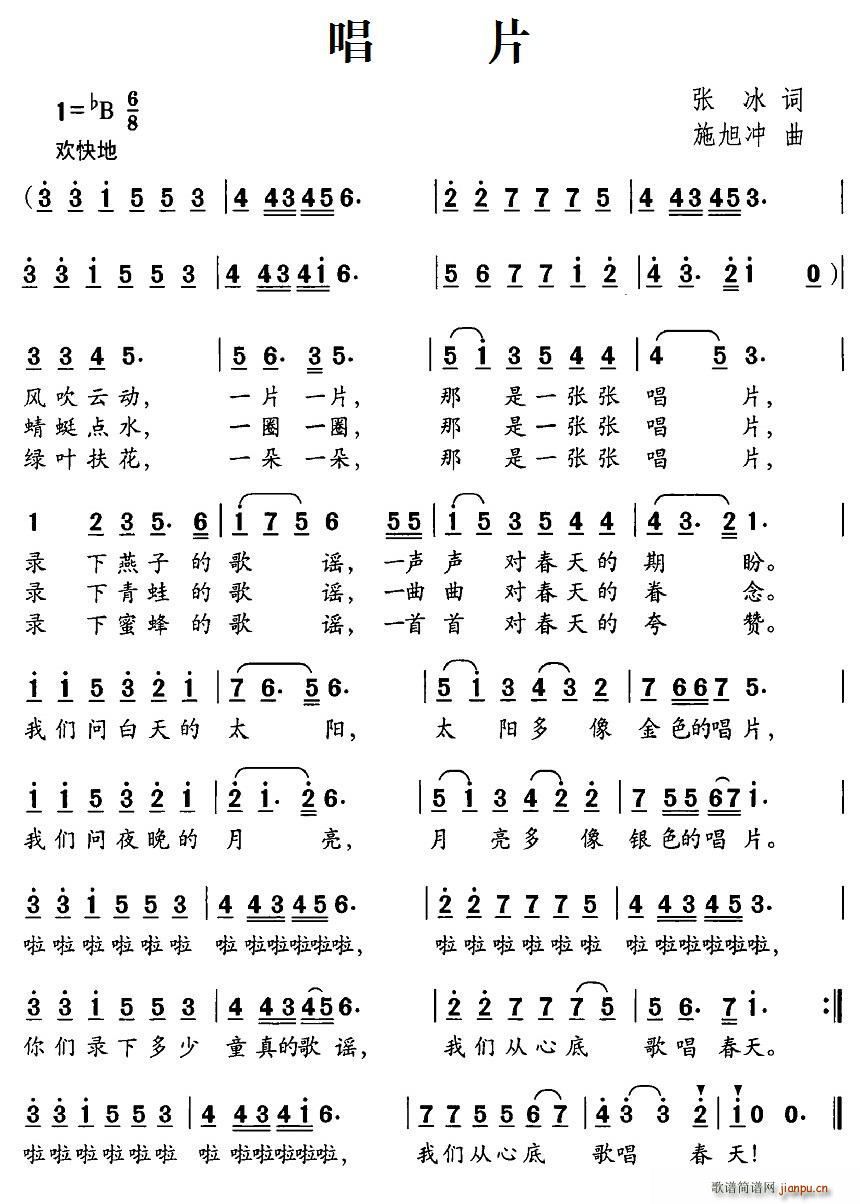 唱 片
1=♭B 6/8
张 冰 词
欢快地
施旭冲 曲
(3̇ 3̇ 1̇ 5 5 3 | 4 43456. | 2̇ 2̇ 7 7 7 5 | 4 43453. |
3̇ 3̇ 1̇ 5 5 3 | 4 4341̇6. | 5 6 7 7 1̇ 2̇ | 4̇ 3̇. 2̇1̇ 0)|
3 3 4 5. | 5 6. 3 5. | 5 1̇ 3 5 4 4 | 4 5 3. |
风吹云动, 一片一片, 那 是一张张 唱 片,
蜻蜓点水, 一圈一圈, 那 是一张张 唱 片,
绿叶扶花, 一朵一朵, 那 是一张张 唱 片,
1 2 3 5. 6 | 1̇ 7 5 6 55 | 1̇ 5 3 5 4 4 | 4 3. 2 1. |
录 下燕子的歌 谣, 一声声 对春天的 期 盼。
录 下青蛙的歌 谣, 一曲曲 对春天的 眷 念。
录 下蜜蜂的歌 谣, 一首首 对春天的 夸 赞。
1̇ 1̇ 5 3̇ 2̇ 1̇ | 7 6. 5 6. | 5 1̇ 3 4 3 2 | 7 667 5. |
我们问白天的 太 阳, 太 阳多 像 金色的唱片,
1̇ 1̇ 5 3̇ 2̇ 1̇ | 2̇ 1̇. 2̇ 6. | 5 1̇ 3 4 2̇ 2̇ | 7 55671̇. |
我们问夜晚的 月 亮, 月 亮多 像 银色的唱片。
3̇ 3̇ 1̇ 5 5 3 | 4 43456. | 2̇ 2̇ 7 7 7 5 | 4 43453. |
啦啦啦啦啦啦 啦 啦啦啦啦啦, 啦啦啦啦啦啦 啦 啦啦啦啦啦,
3̇ 3̇ 1̇ 5 5 3 | 4 43456. | 2̇ 2̇ 7 7 7 5 | 5 6. 7 1̇. :‖
你们录下多少 童真的歌谣, 我们从心底 歌唱 春天。
3̇ 3̇ 1̇ 5 5 3 | 4 4341̇6. | 7 7 5 5 6 7 | 4̇ 3̇ 3̇ 2̇ | 1̇ 0 0. ‖
啦啦啦啦啦啦 啦 啦啦啦啦啦, 我们从心底 歌唱 春 天!
歌谱简谱网
jianpu.cn